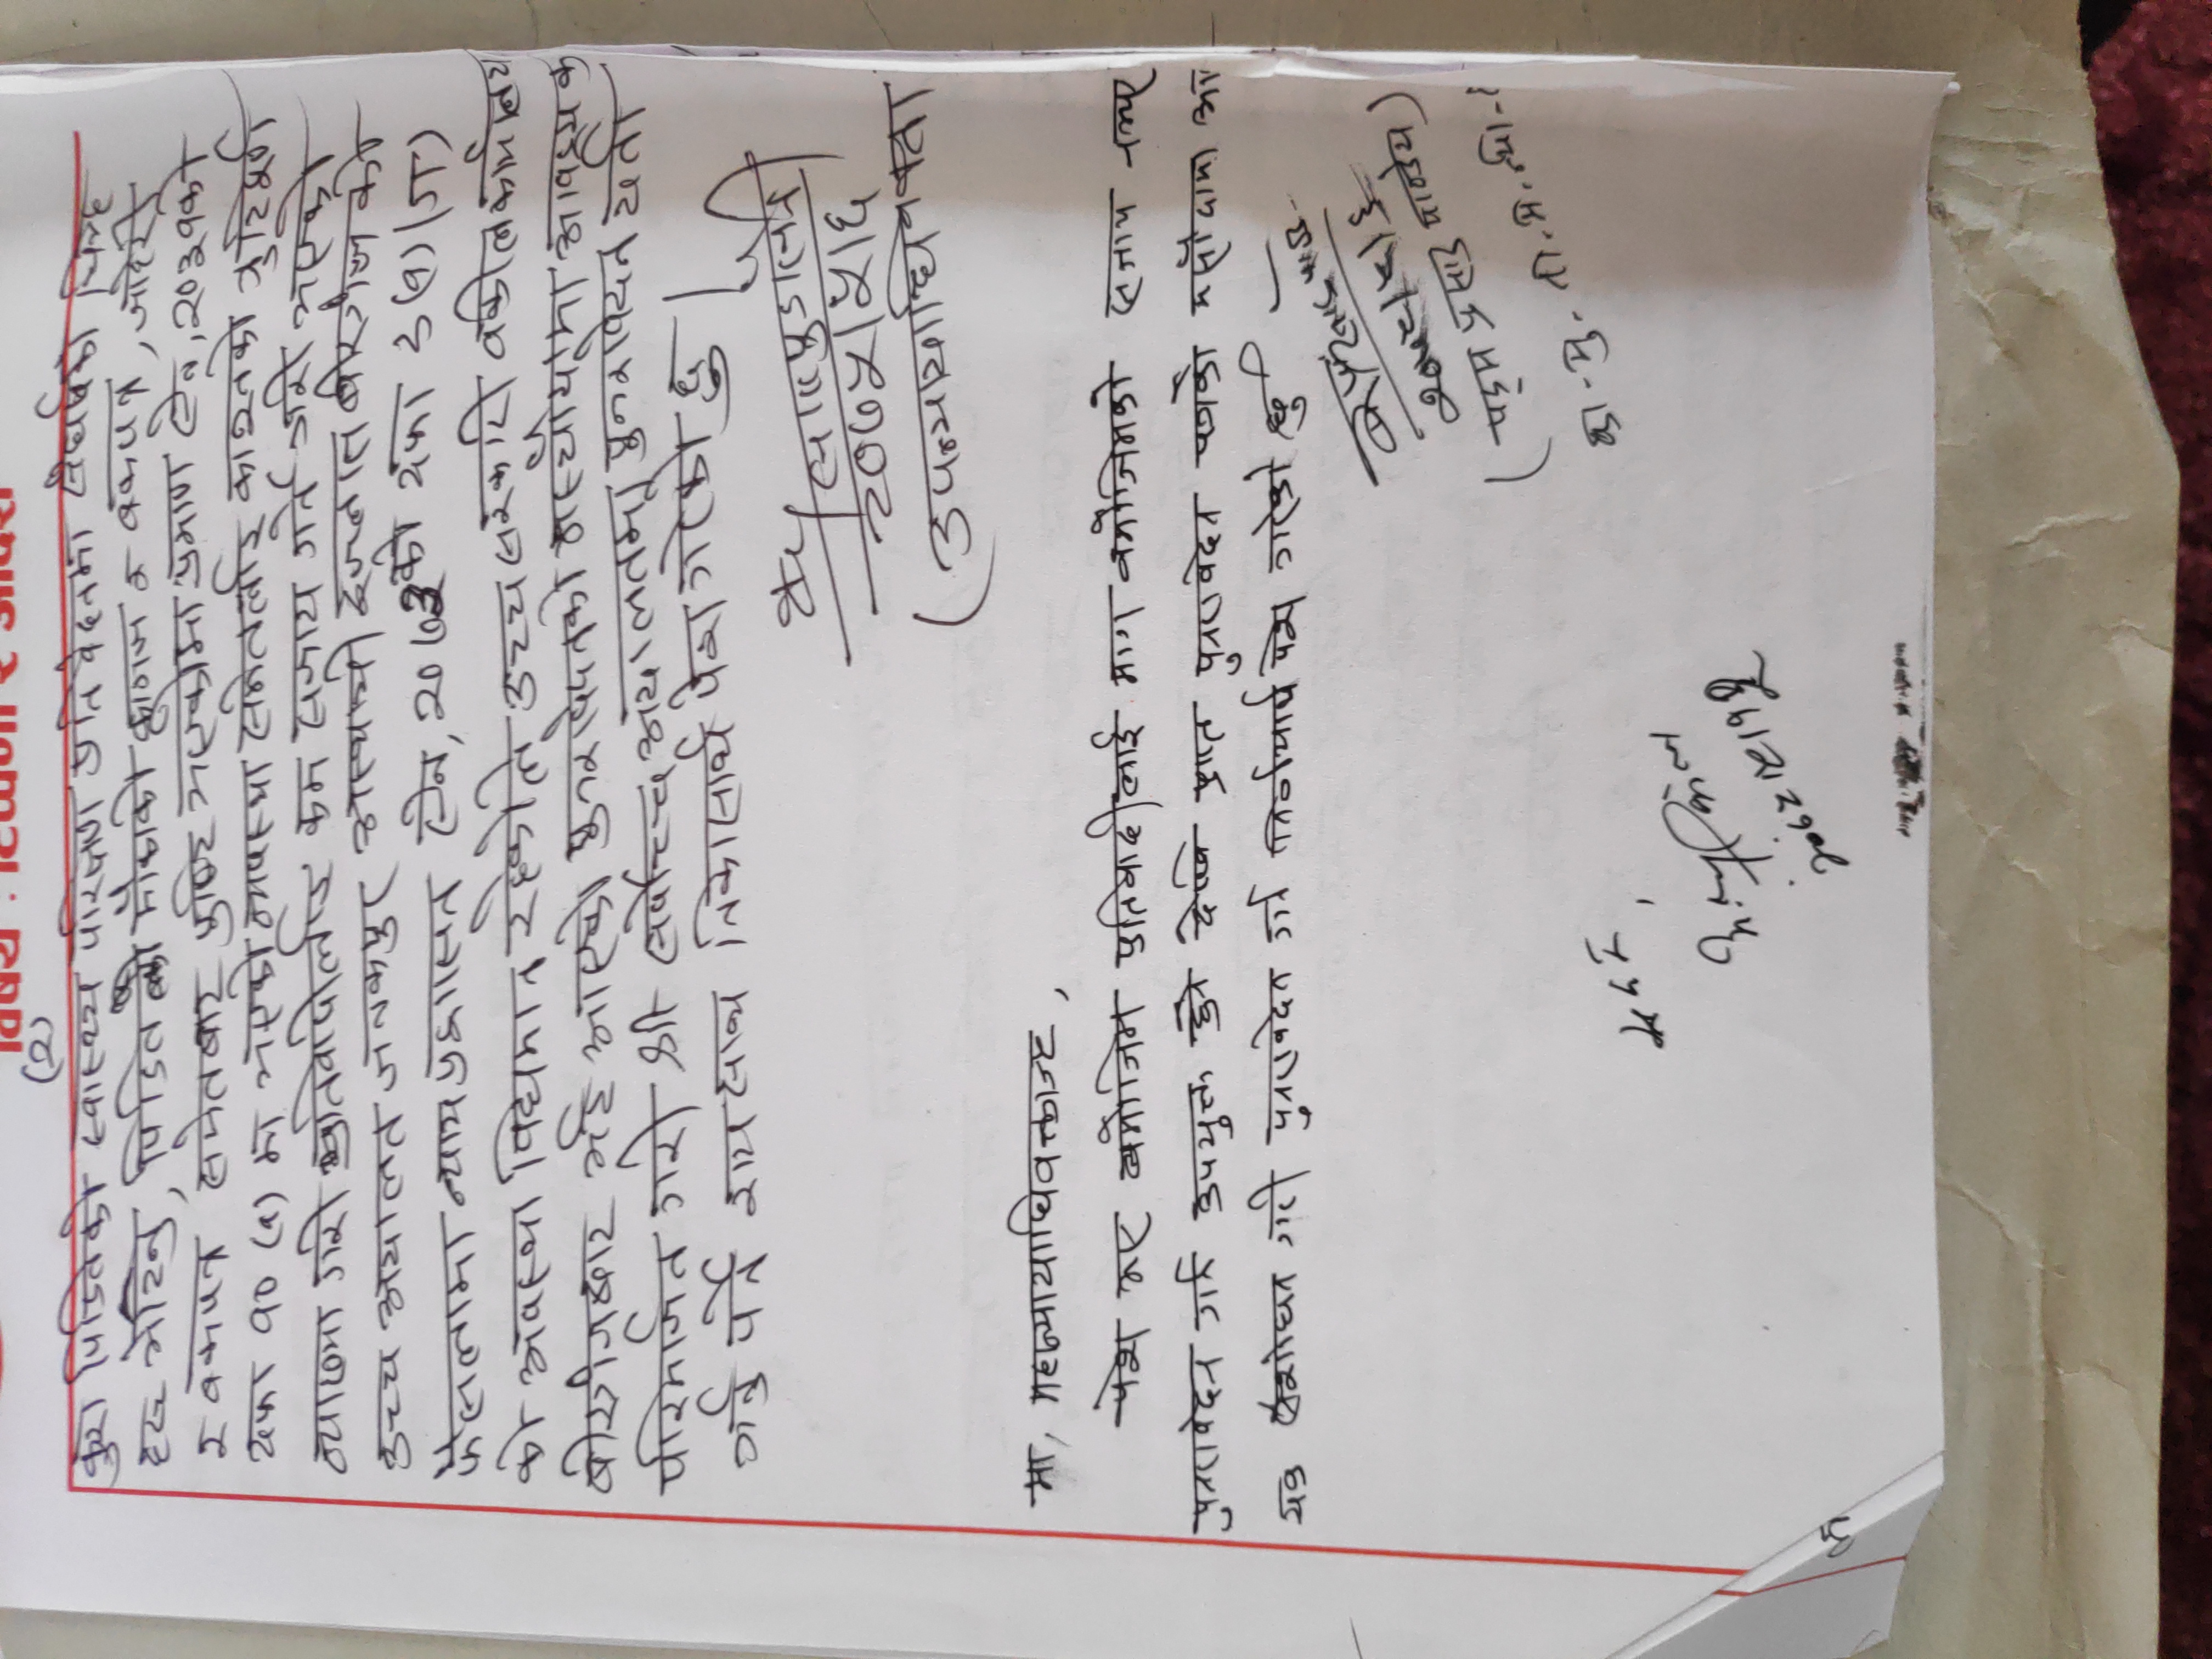 विषय : टिप्पणी र आदेश
(२)
कुरा पिडितको स्वास्थ्य परिक्षण प्रतिवेदनमा संघर्षको चिन्ह
हरु भेटिनु, पिडितको मौकाको कागज र वकपत्र, जाहेरी
र वकपत्र समेतबाट पुष्टि भएकोमा प्रमाण ऐन, २०३१को
दफा १० (१) मा भएको व्यवस्था समेतलाई कानूनको त्रुटिपूर्ण
व्याख्या गरी प्रतिवादीलाई कम सजाय गर्ने गरी भएको
उच्च अदालत जनकपुर अस्थायी इजलास बीरगंज को
फैसलामा न्याय प्रशासन ऐन, २०७३को दफा ९(१)(ग)
को अवस्था विद्यमान रहेकोले उच्च सरकारी वकील कार्यालय
बीरगंजबाट भई आएको पुनरावेदनको मस्यौदामा आवश्यक
परिमार्जन गरी श्री सर्वोच्च अदालतमा पुनरावेदन दर्ता
गर्नु पर्ने राय साथ निकासार्थ पेश गरेको छु।
२०७५।५।६
(उपन्यायाधिवक्ता
मा. महान्यायाधिवक्ताज्यू,
पेश भए बमोजिम प्रतिवादीलाई माग बमोजिमको सजाय नभए
पुनरावेदन गर्न उपयुक्त हुने देखि प्राप्त पुनरावेदन पत्रको मसौदामा आ
यक संशोधन गरी पुनरावेदन गर्न निर्णयार्थ पेश गरेको छु
(पद्म प्रसाद पाण्डेय)
का. मु. ना. म. न्या.
सदर,